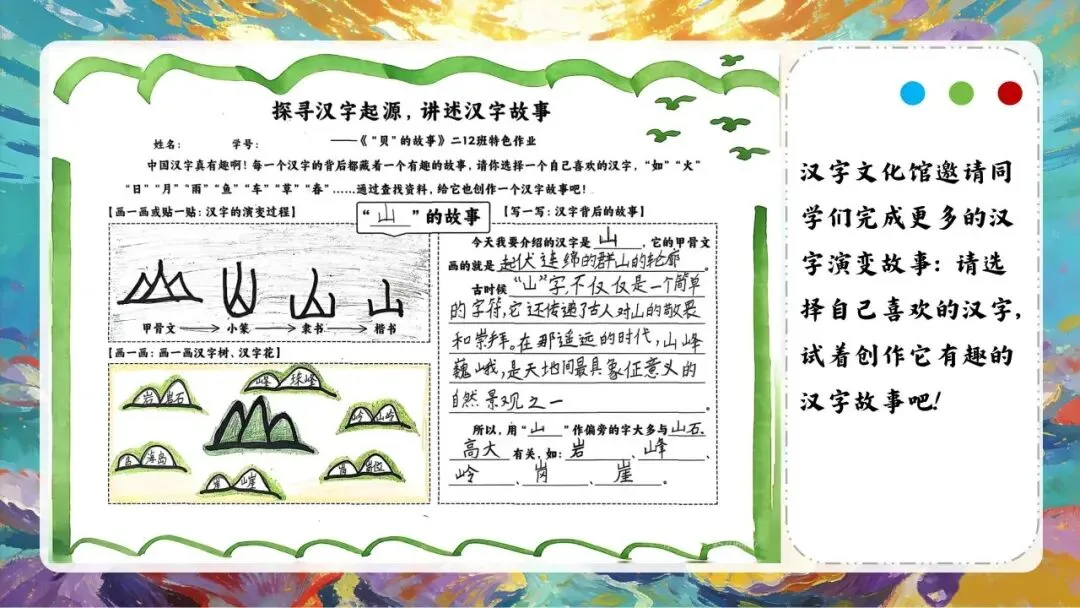 探寻汉字起源，讲述汉字故事
姓名： 学号： ——《“贝”的故事》二12班特色作业
中国汉字真有趣啊！每一个汉字的背后都藏着一个有趣的故事，请你选择一个自己喜欢的汉字，“如”“火”
“日”“月”“雨”“鱼”“车”“草”“春”……通过查找资料，给它也创作一个汉字故事吧！
【画一画或贴一贴：汉字的演变过程】
“山”的故事
【写一写：汉字背后的故事】
山 山
甲骨文 小篆 隶书 楷书
【画一画：画一画汉字树、汉字花】
岩 岩石
峰 珠峰
岭 山岭
岛 海岛
崖 山崖
岗 岗位
今天我要介绍的汉字是 山 ，它的甲骨文
画的就是 起伏连绵的群山的轮廓 。
古时候“山”字不仅仅是一个简单
的字符，它还传递了古人对山的敬畏
和崇拜。在那遥远的时代，山峰
巍峨，是天地间最具象征意义的
自然景观之一 。
所以，用“山”作偏旁的字大多与 山石、
高大 有关，如：岩 、峰 、
岭 、岗 、崖 。
汉字文化馆邀请同
学们完成更多的汉
字演变故事：请选
择自己喜欢的汉字，
试着创作它有趣的
汉字故事吧！